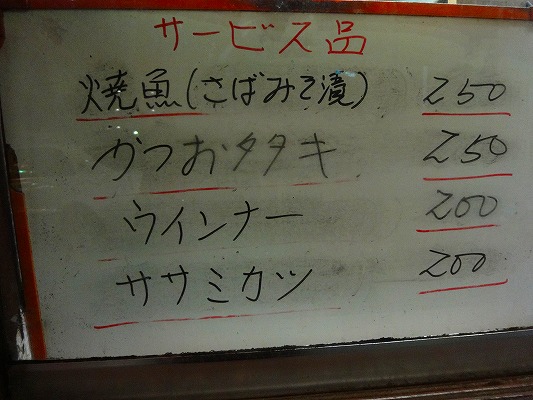 サービス品
焼魚(さばみそ漬) 250
かつおタタキ 250
ウインナー 200
ササミカツ 200